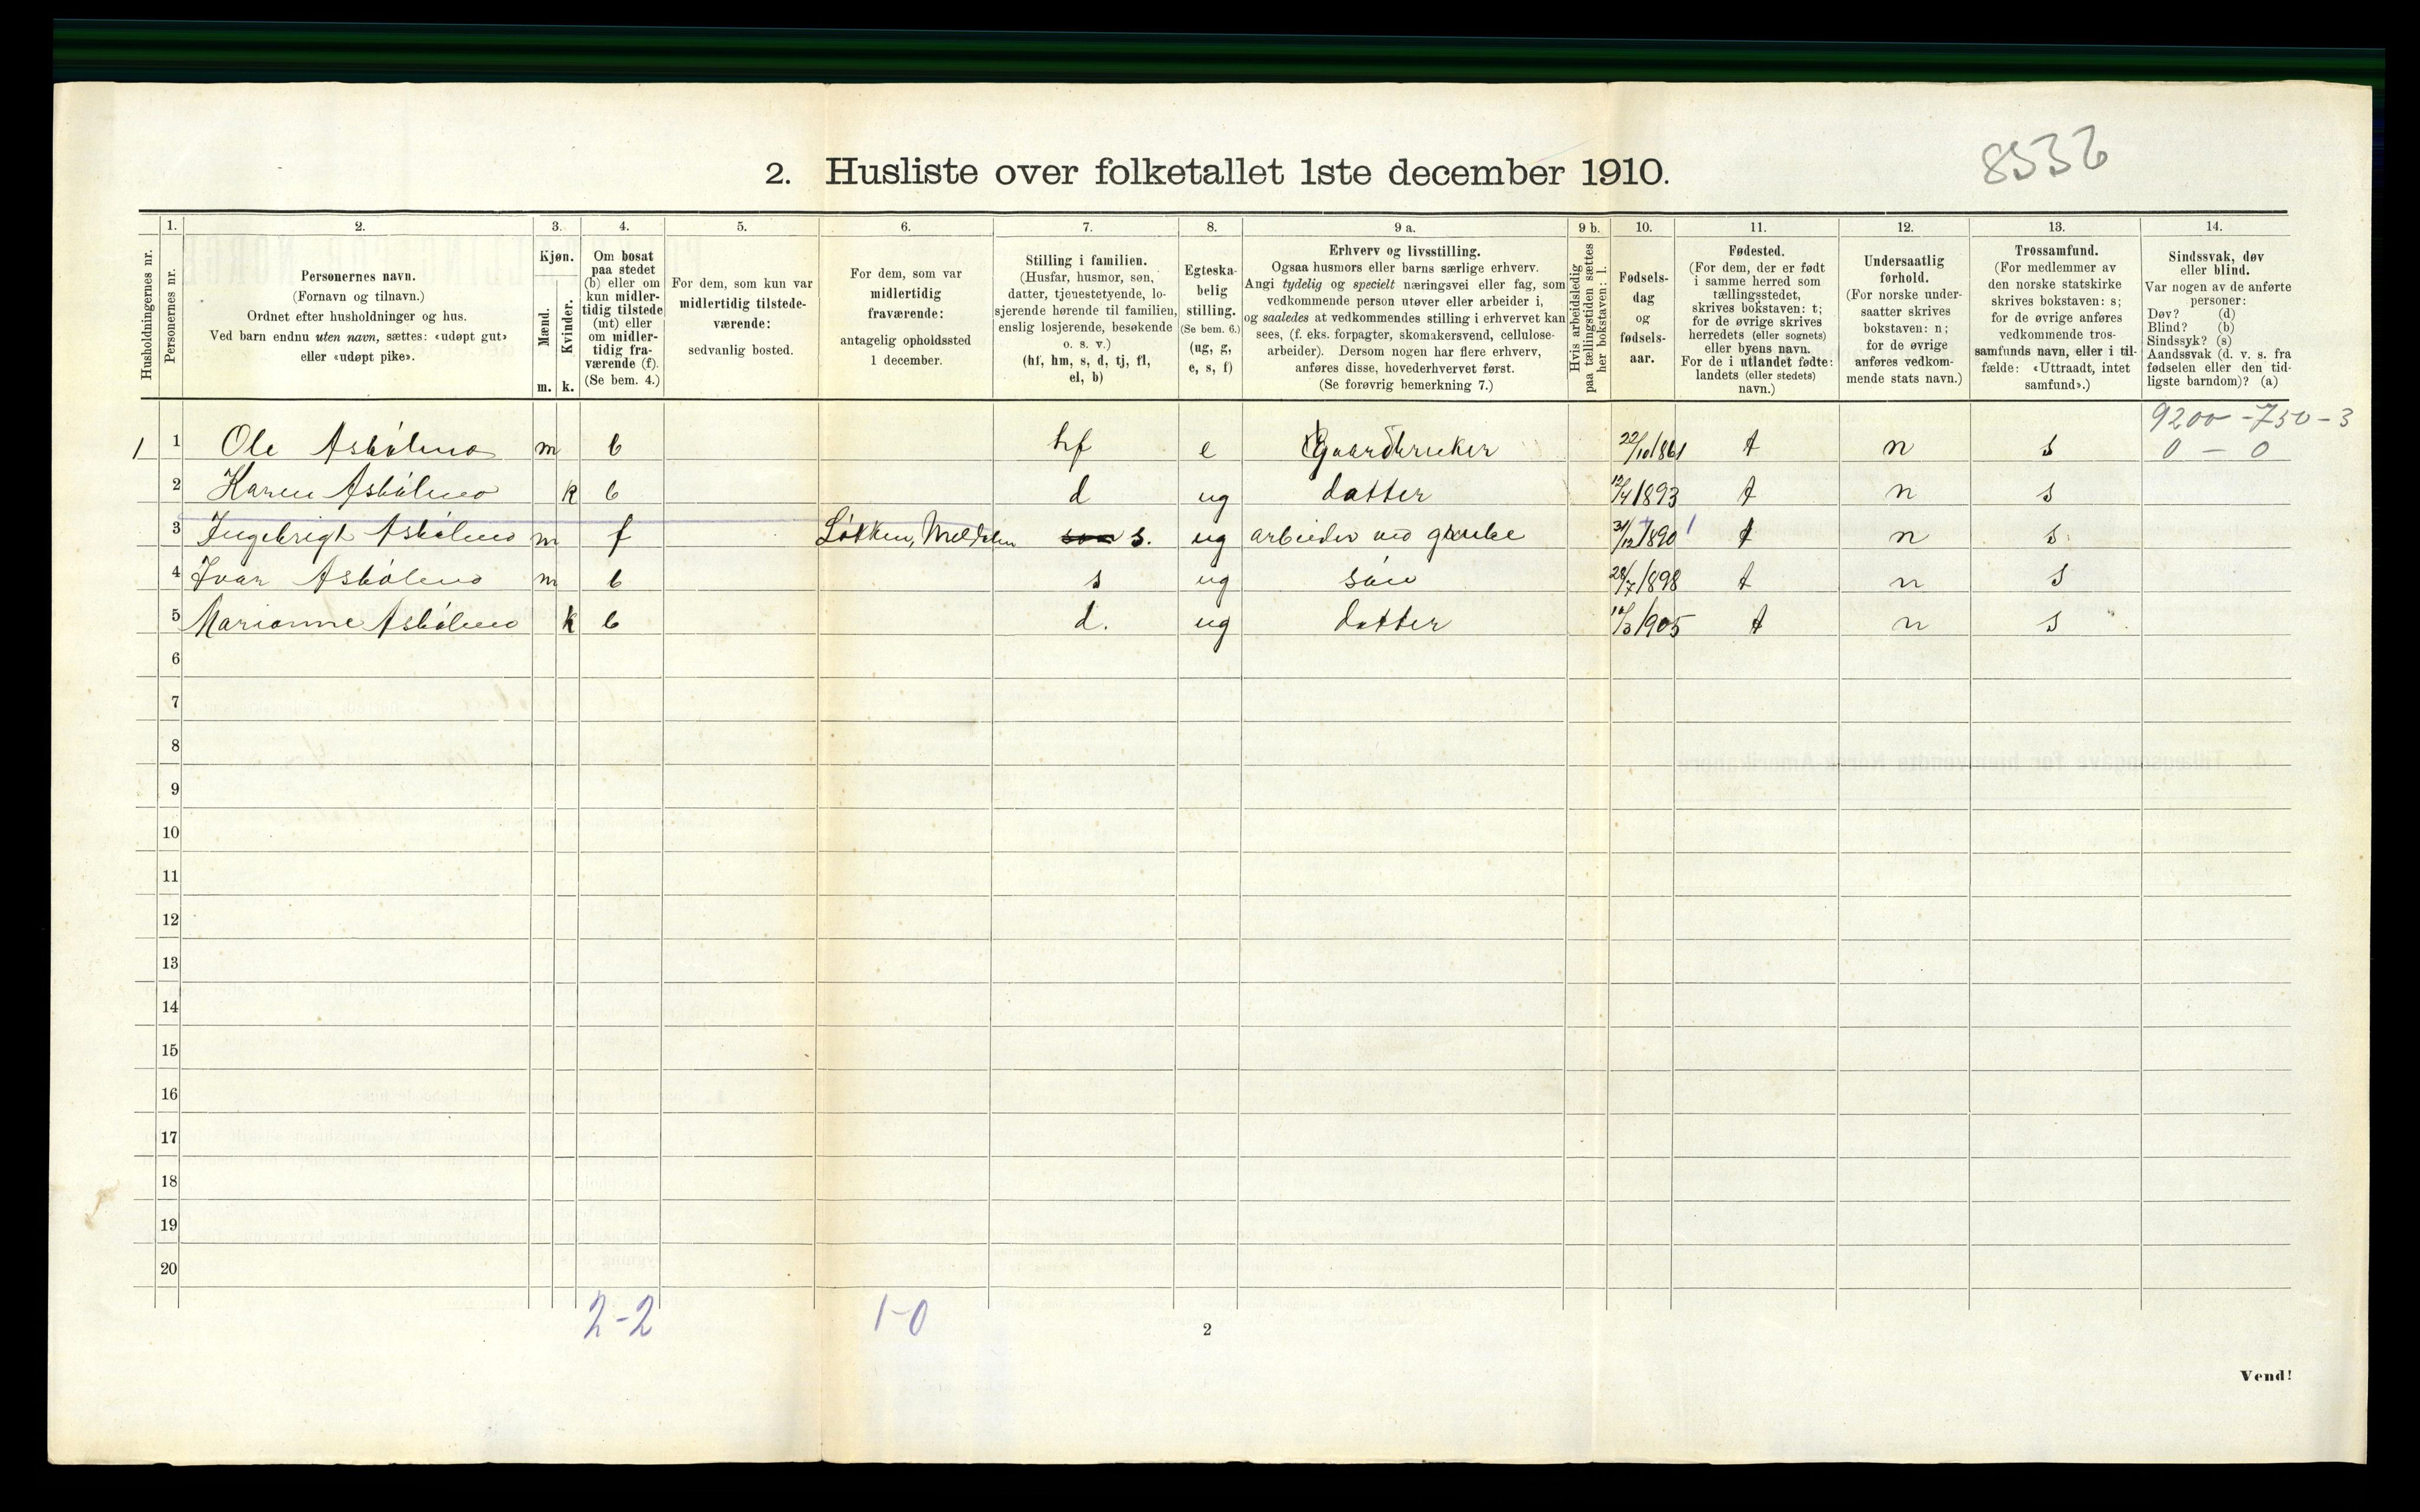 8536
2. Husliste over folketallet 1ste december 1910.
Husholdningernes nr.
1. Personernes nr.
2. Personernes navn.
(Fornavn og tilnavn.)
Ordnet efter husholdninger og hus.
Ved barn endnu uten navn, sættes: «udøpt gut»
eller «udøpt pike».
3. Kjøn.
Mænd. m.
Kvinder. k.
4. Om bosat
paa stedet
(b) eller om
kun midler-
tidig tilstede
(mt) eller
om midler-
tidig fra-
værende (f).
(Se bem. 4.)
5. For dem, som kun var
midlertidig tilstede-
værende:
sedvanlig bosted.
6. For dem, som var
midlertidig
fraværende:
antagelig opholdssted
1 december.
7. Stilling i familien.
(Husfar, husmor, søn,
datter, tjenestetyende, lo-
sjerende hørende til familien,
enslig losjerende, besøkende
o. s. v.)
(hf, hm, s, d, tj, fl,
el, b)
8. Egteska-
belig
stilling.
(Se bem. 6.)
(ug, g,
e, s, f)
9 a. Erhverv og livsstilling.
Ogsaa husmors eller barns særlige erhverv.
Angi tydelig og specielt næringsvei eller fag, som
vedkommende person utøver eller arbeider i,
og saaledes at vedkommendes stilling i erhvervet kan
sees, (f. eks. forpagter, skomakersvend, cellulose-
arbeider). Dersom nogen har flere erhverv,
anføres disse, hovederhvervet først.
(Se forøvrig bemerkning 7.)
9 b. Hvis arbeidsledig
paa tællingstiden sættes
her bokstaven: l.
10. Fødsels-
dag
og
fødsels-
aar.
11. Fødested.
(For dem, der er født
i samme herred som
tællingsstedet,
skrives bokstaven: t;
for de øvrige skrives
herredets (eller sognets)
eller byens navn.
For de i utlandet fødte:
landets (eller stedets)
navn.)
12. Undersaatlig
forhold.
(For norske under-
saatter skrives
bokstaven: n;
for de øvrige
anføres vedkom-
mende stats navn.)
13. Trossamfund.
(For medlemmer av
den norske statskirke
skrives bokstaven: s;
for de øvrige anføres
vedkommende tros-
samfunds navn, eller i til-
fælde: «Uttraadt, intet
samfund».)
14. Sindssvak, døv
eller blind.
Var nogen av de anførte
personer:
Døv? (d)
Blind? (b)
Sindssyk? (s)
Aandssvak (d. v. s. fra
fødselen eller den tid-
ligste barndom)? (a)
9200 - 750 - 3
1 1 Ole Asbølmo m b hf e Gaardbruker 22/10 1861 t n s 0 - 0
2 Karen Asbølmo k b d ug datter 12/4 1893 t n s
3 Ingebrigt Asbølmo m f Løkken, Meldalen s. ug arbeider ved grube 31/12 1890 t n s
4 Ivar Asbølmo m b s ug søn 28/7 1898 t n s
5 Marianne Asbølmo k b d. ug datter 10/3 1905 t n s
6
7
8
9
10
11
12
13
14
15
16
17
18
19
20
2-2 1-0
2
Vend!